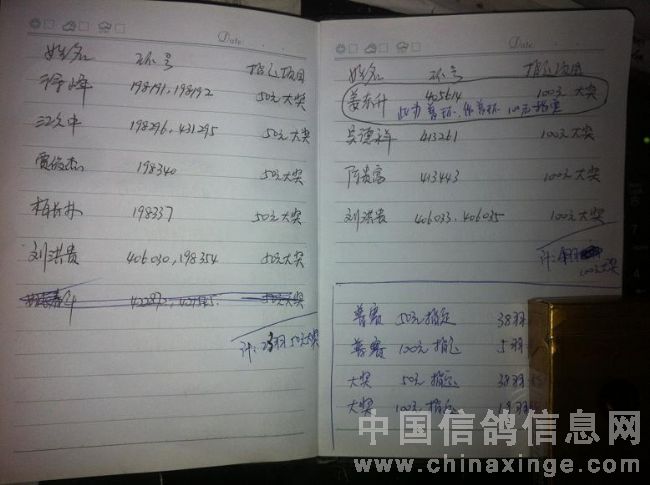 Date:
姓名 环号 指定项目
峰 198191,198192 50元大奖
198296,431295 50元大奖
贾俊杰 198340 50元大奖
198337 50元大奖
刘洪贵 406030,198354 50元大奖
50元大奖
计: 羽50元大奖
Date:
姓名 环号 指定项目
姜东升 405614 100元大奖
此为普环,作普环100元指定
吴德祥 413261 100元大奖
陈贵富 413443 100元大奖
刘洪贵 406033,406035 100元大奖
计: 羽
100元大奖
普赛 50元指定 38羽
普赛 100元指定 5羽
大奖 50元指定 38羽
大奖 100元指定
中国信鸽信息网
www.chinaxinge.com